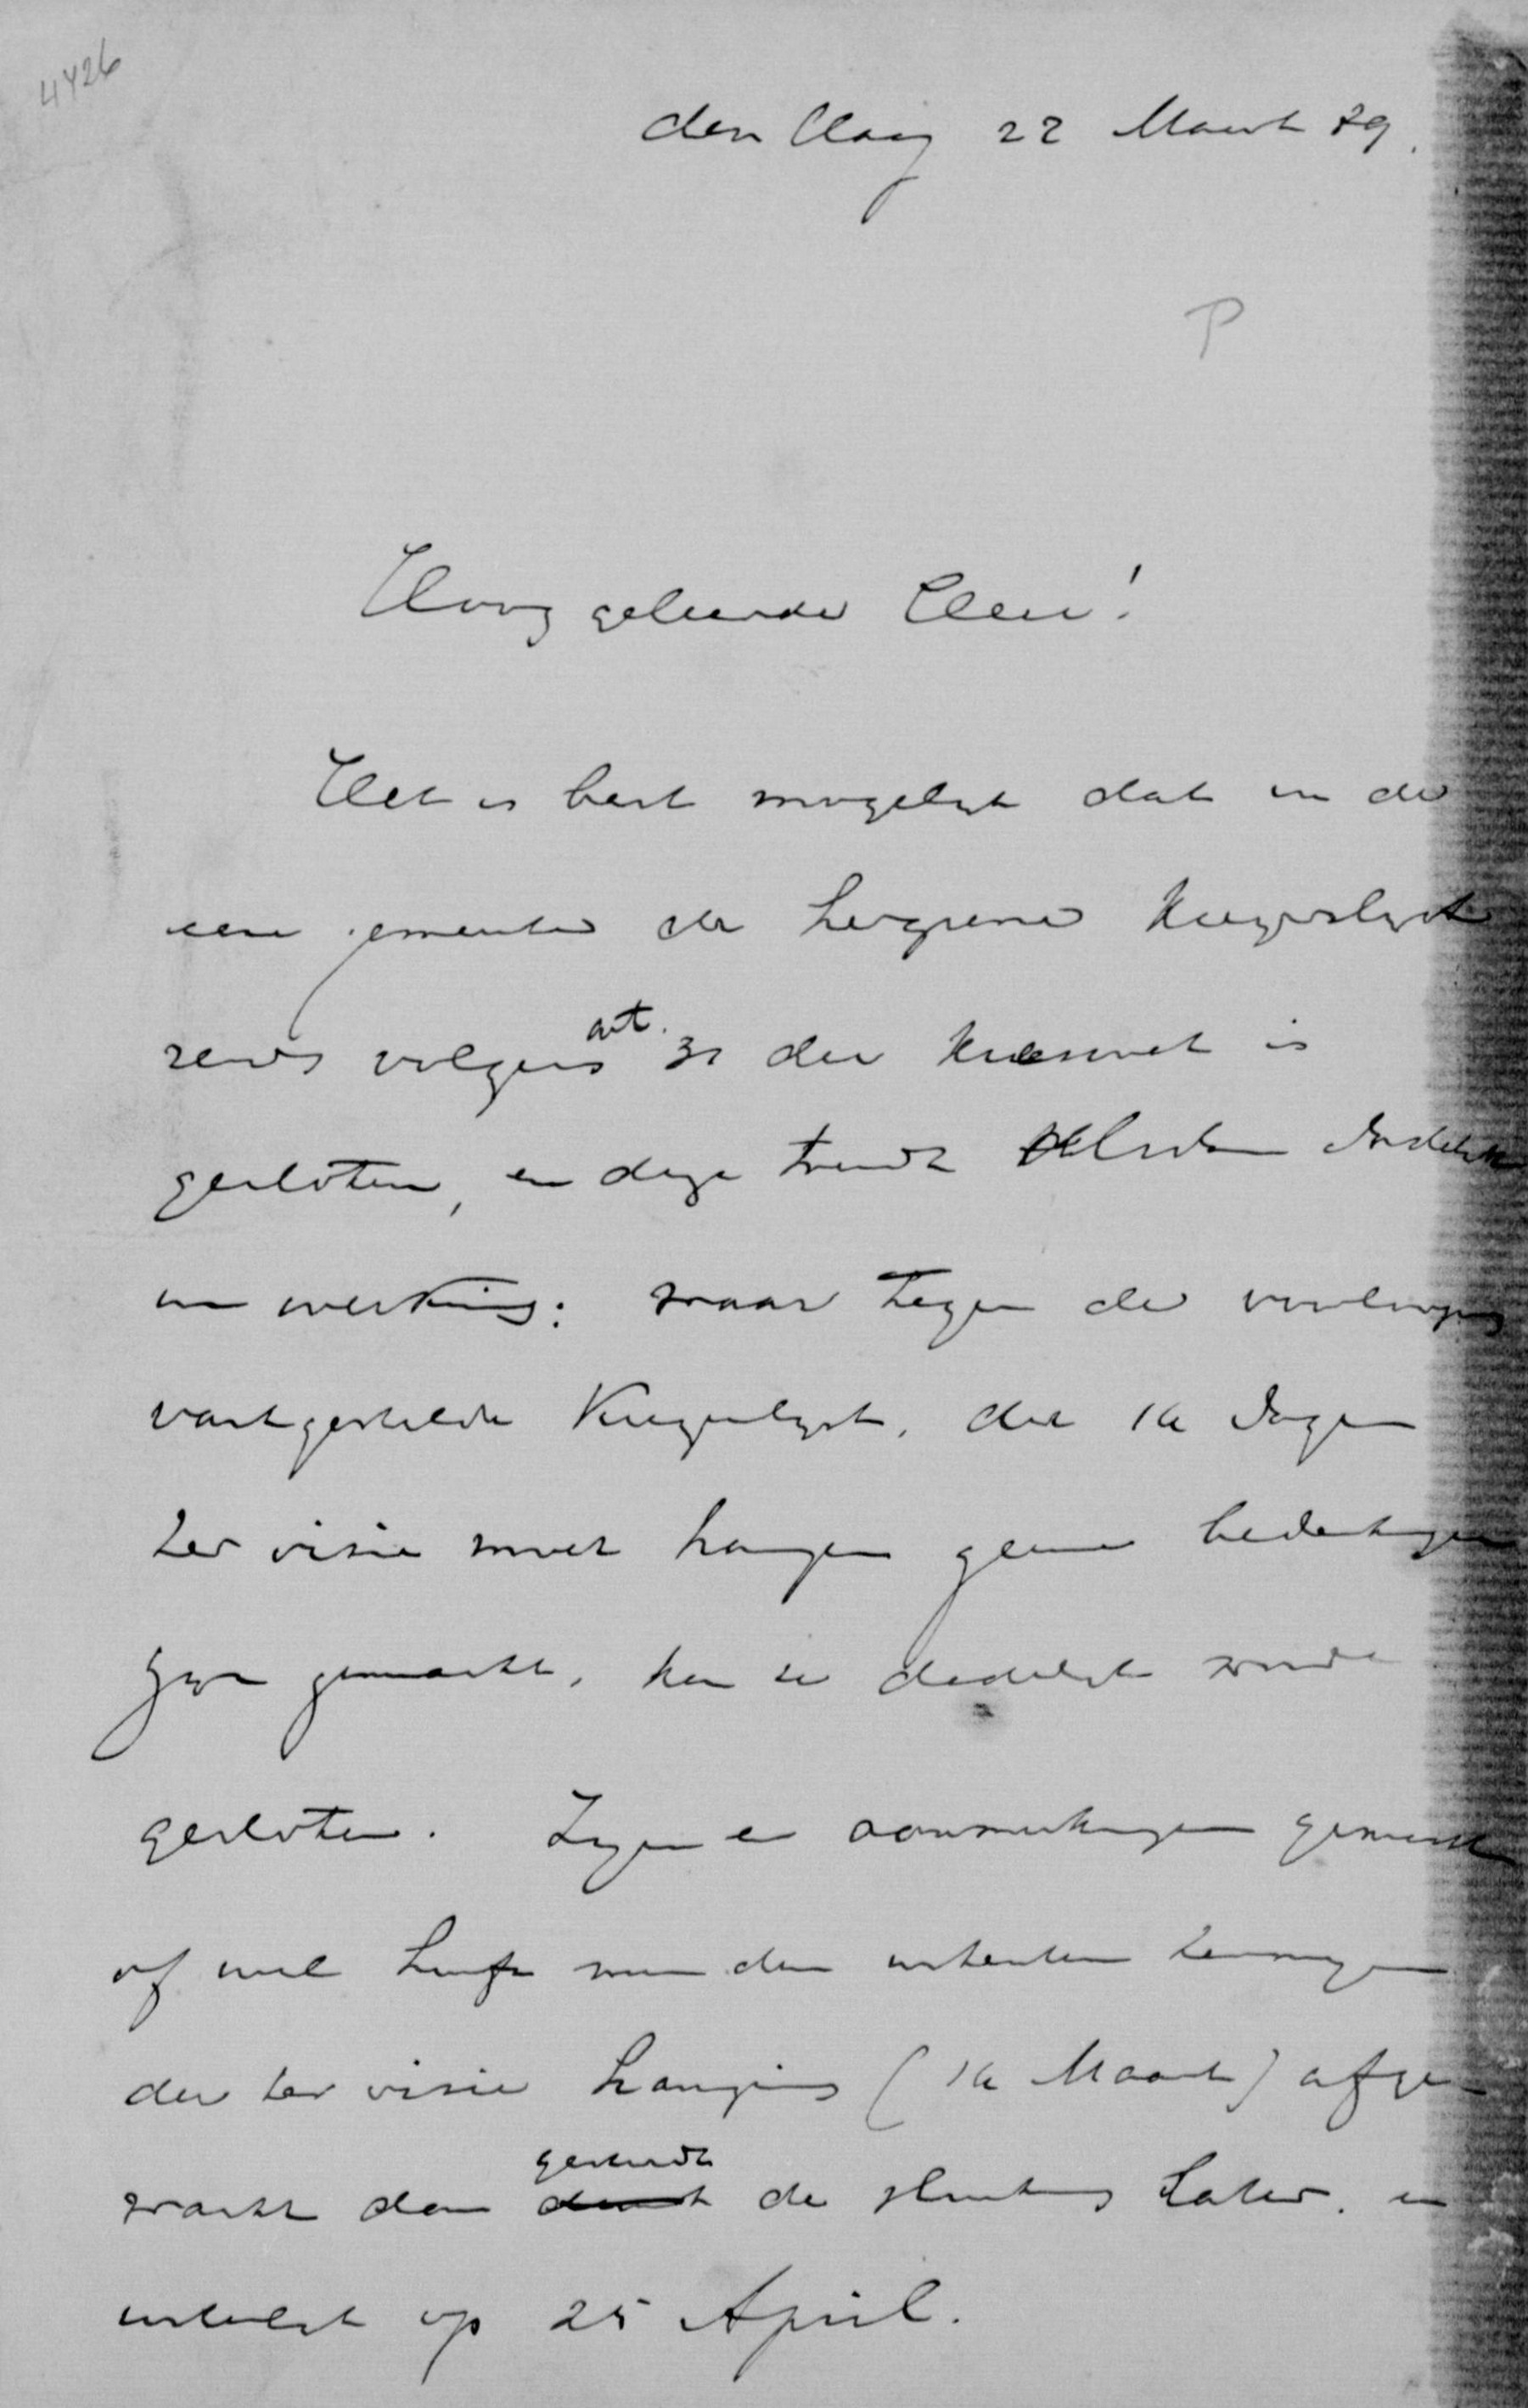 4426
den Haag 22 Maart 89.
P
Hooggeleerde Heer!
Het is best mogelijk dat in de
eene gemeente de herziene kiezerslijst
reeds volgens art. 31 der kieswet is
gesloten, en deze treedt alsdan dadelijk
in werking: waar tegen de voorloopig
vastgestelde Kiezerslijst, die 14 dagen
ter visie moet hangen geene bedenkingen
zijn gemaakt, kan ze dadelijk worden
gesloten. Zijn er aanmerkingen gemaakt
of wel heeft men den uitersten termijn
der ter visie hanging (14 Maart) afge-
wacht dan geschiedt de sluiting later. en
uiterlijk op 25 April.